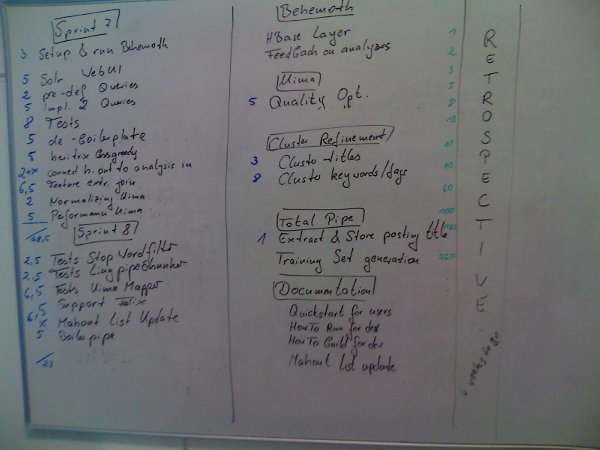 Sprint 7
3 Setup & run Behemoth
5 Solr WebUI
2 pre-def Queries
5 impl. 2 Queries
8 Tests
5 de-Boilerplate
5 heritrix
2+x conned h. out to analysis in
6,5 Feature extr. join
2 Normalizing Uima
5 Performance Uima
/48,5
Sprint 8
2,5 Tests Stop Wordfilter
2,5 Tests Lingpipe Chunker
6,5 Tests Uima Mapper
6,5 Support Felix
x Mahout List Update
5 Boilerpipe
Behemoth
HBase Layer
Feedback on analyzes
Uima
5 Quality Opt.
Cluster Refinement
3 Cluster titles
8 Cluster keywords/tags
Total Pipe
1 Extract & Store posting title
Training Set generation
Documentation
Quickstart for users
HowTo Run for dev
HowTo Build for dev
Mahout list update
1
2
3
5
8
13
100
RETROSPECTIVE
weeks to go